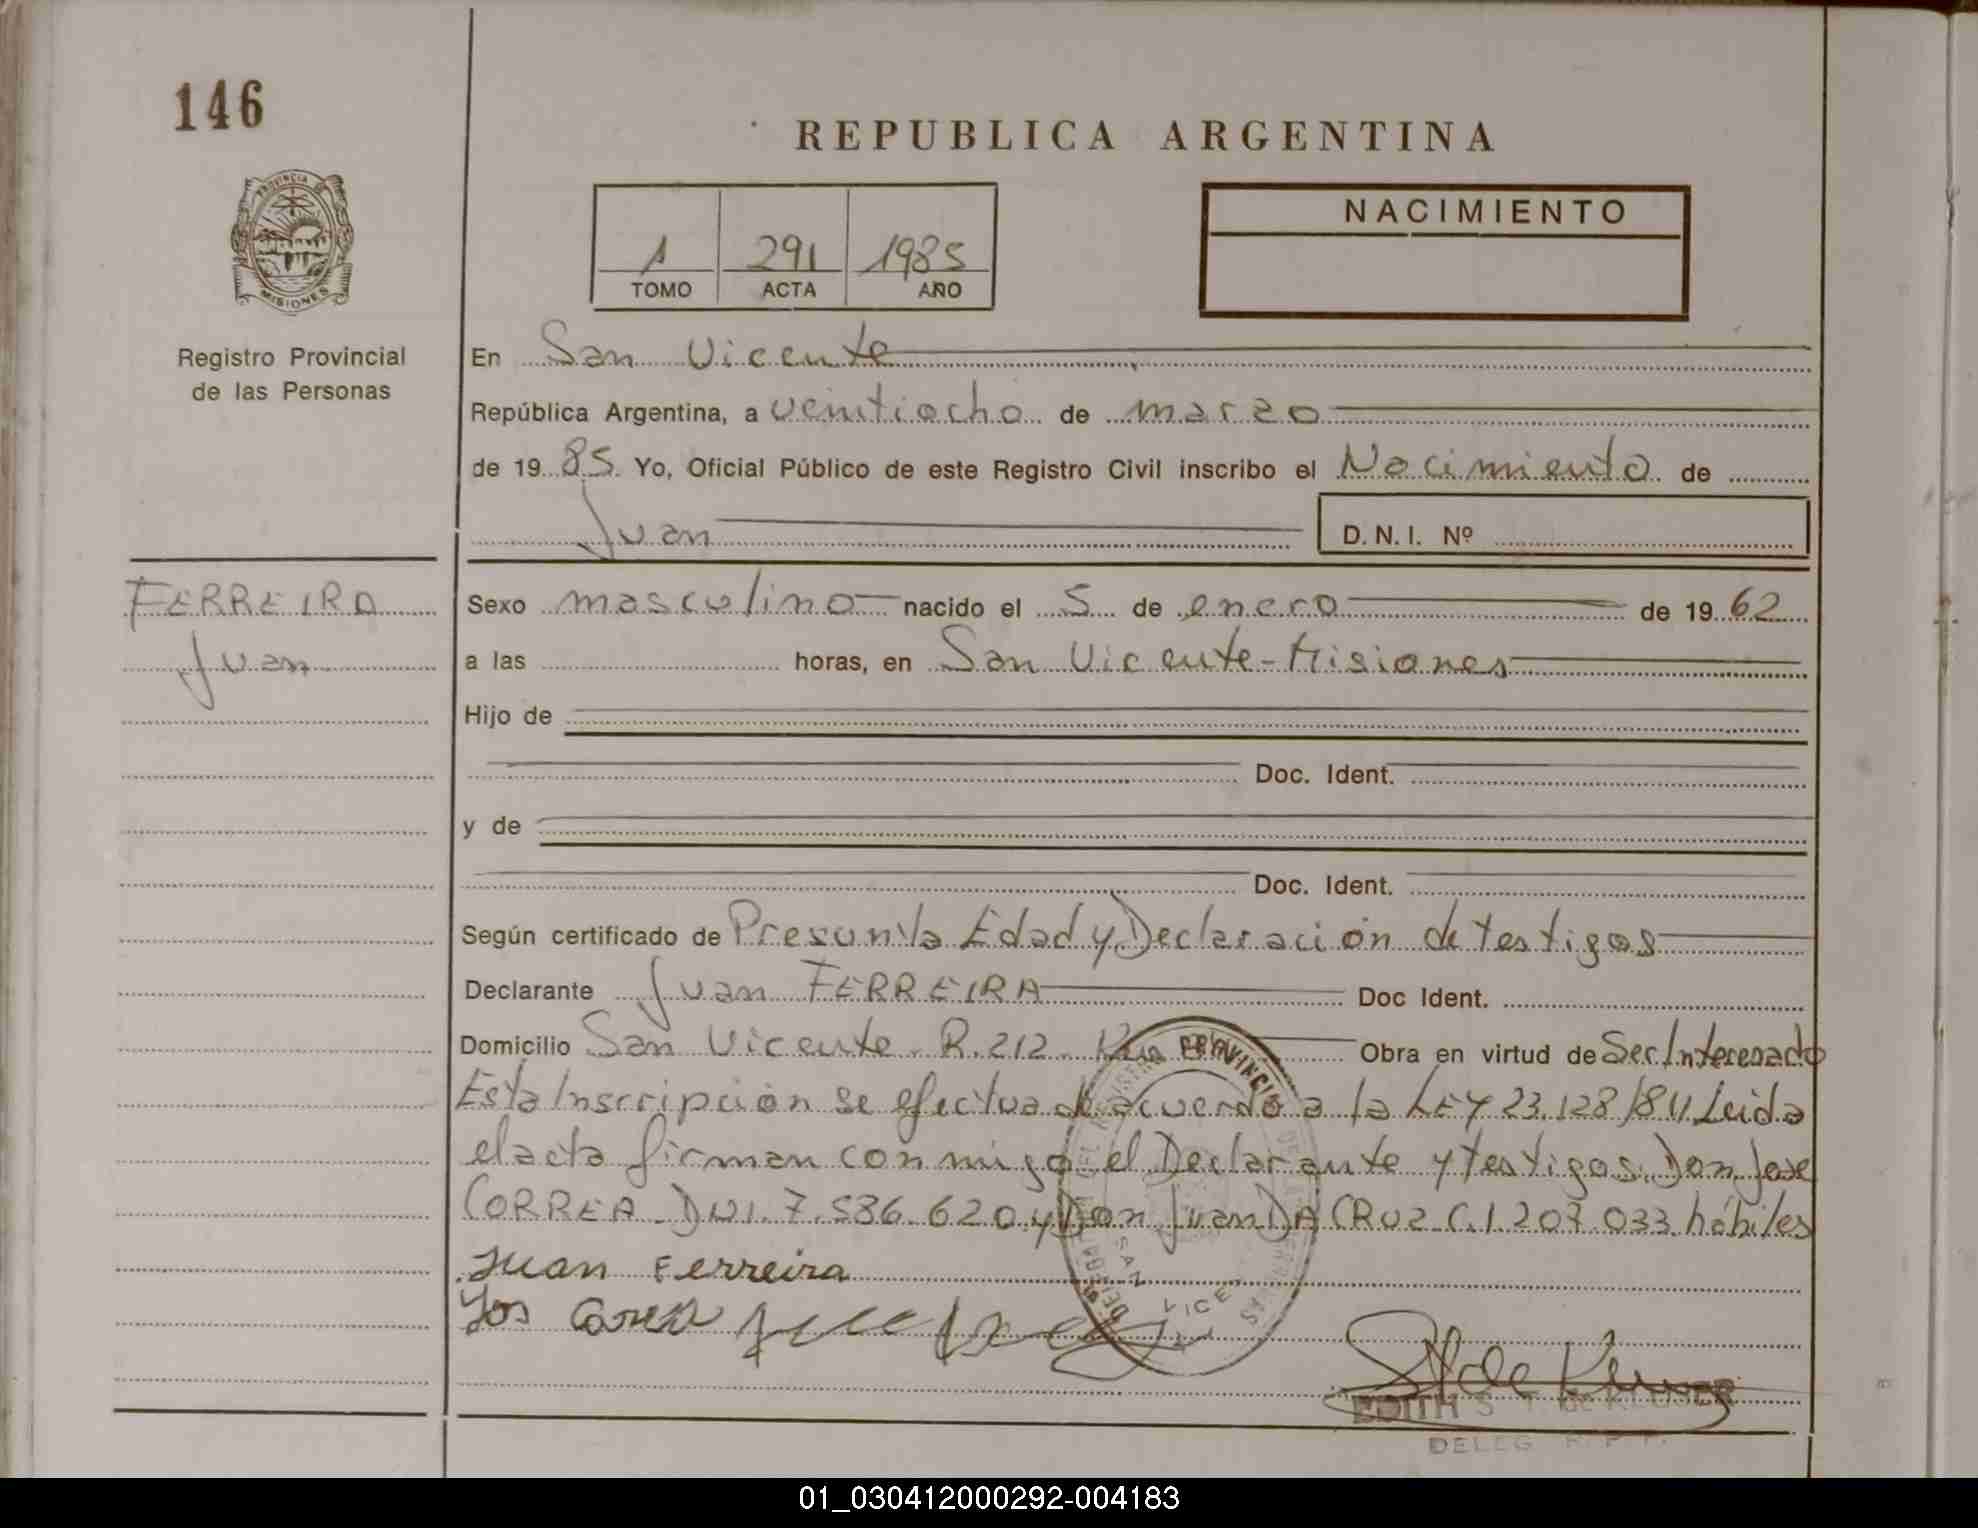 146
REPUBLICA ARGENTINA
PROVINCIA DE
MISIONES
1 291 1985
TOMO ACTA AÑO
NACIMIENTO
Registro Provincial
de las Personas
En San Vicente
República Argentina, a veintiocho de marzo
de 1985 Yo, Oficial Público de este Registro Civil inscribo el Nacimiento de
Juan D.N.I. Nº
FERREIRA
Juan
Sexo masculino nacido el 5 de enero de 1962
a las horas, en San Vicente - Misiones
Hijo de
Doc. Ident.
y de
Doc. Ident.
Según certificado de Presunta Edad y Declaración de testigos
Declarante Juan FERREIRA Doc Ident.
Domicilio San Vicente R.212 Obra en virtud de Ser Interesado
Esta Inscripción se efectua de acuerdo a la LEY 23.128/84 Leida
el acta firman con migo el Declarante y testigos Don Jose
CORREA DNI. 7.586.620 y Don Juan DA CRUZ C.I 207.033 hábiles
Juan Ferreira
SAN VICENTE
EDITH S. T. de KLUSER
DELEG R. P. P.
01_030412000292-004183